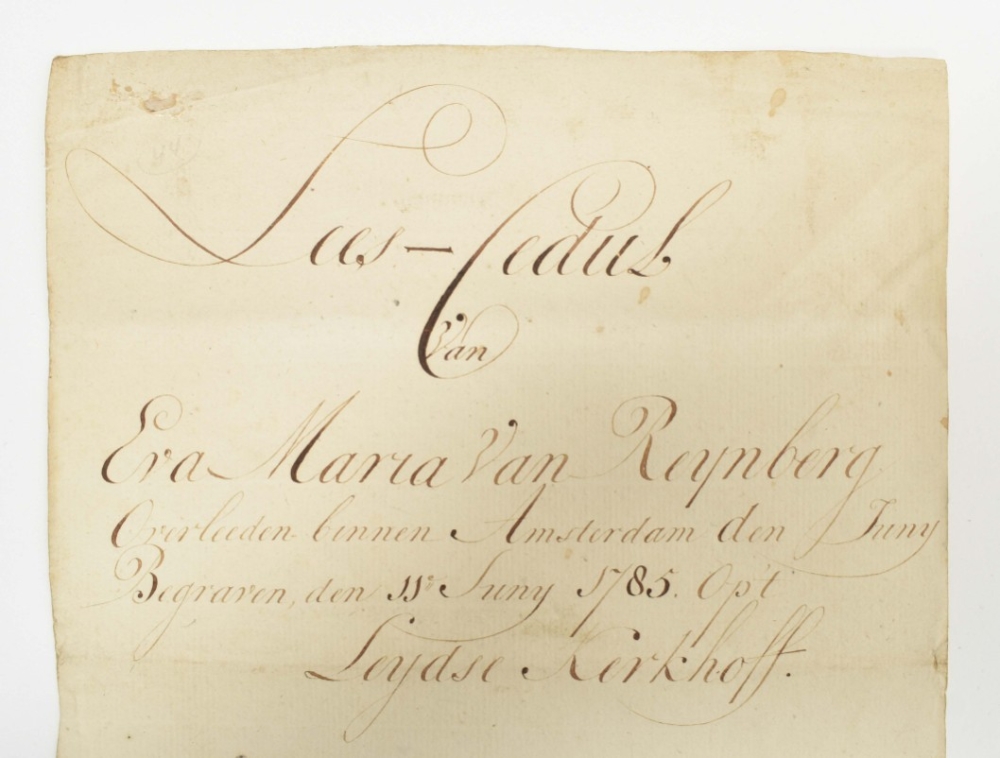 Lees-Cedul
Van
Eva Maria Van Reijnberg
Overleeden binnen Amsterdam den Juny
Begraven, den 11e Juny 1785. Op't
Leydse Kerkhoff.